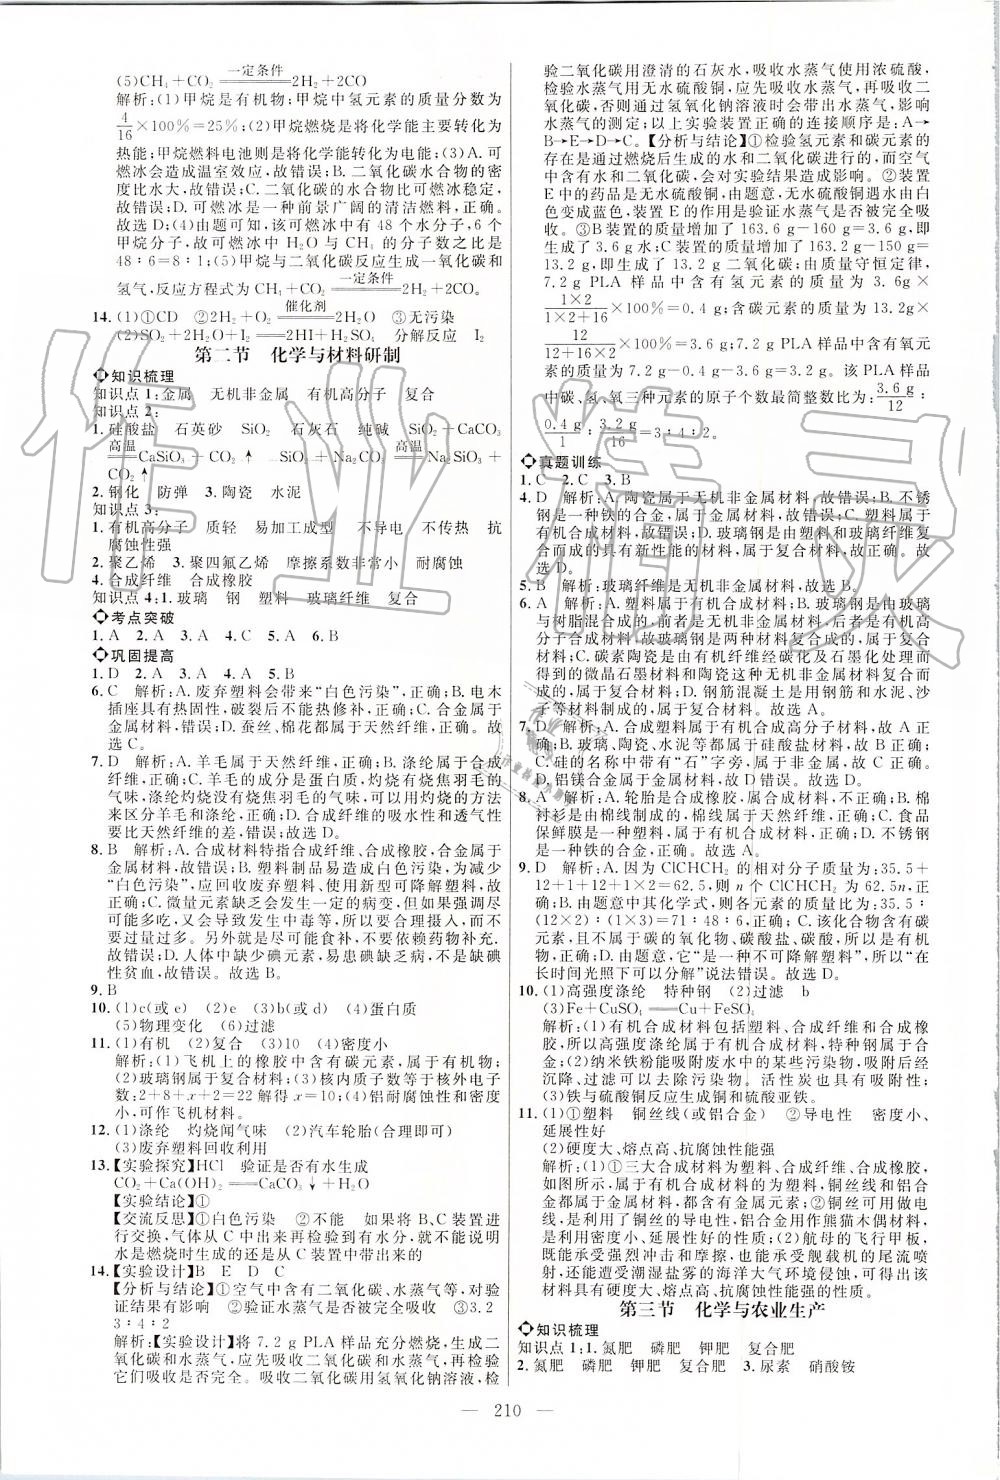 一定条件
(5)CH₄+CO₂═══2H₂+2CO
解析:(1)甲烷是有机物;甲烷中氢元素的质量分数为
4/16×100%=25%;(2)甲烷燃烧是将化学能主要转化为
热能;甲烷燃料电池则是将化学能转化为电能;(3)A.可
燃冰会造成温室效应,故错误;B.二氧化碳水合物的密
度比水大,故错误;C.二氧化碳的水合物比可燃冰稳定,
故错误;D.可燃冰是一种前景广阔的清洁燃料,正确。
故选D;(4)由题可知,该可燃冰中有48个水分子,6个
甲烷分子,故可燃冰中H₂O与CH₄的分子数之比是
48∶6=8∶1;(5)甲烷与二氧化碳反应生成一氧化碳和
一定条件
氢气,反应方程式为CH₄+CO₂═══2H₂+2CO。
催化剂
14.(1)①CD ②2H₂+O₂═══2H₂O ③无污染
(2)SO₂+2H₂O+I₂═══2HI+H₂SO₄ 分解反应 I₂
第二节 化学与材料研制
知识梳理
知识点1:金属 无机非金属 有机高分子 复合
知识点2:
1.硅酸盐 石英砂 SiO₂ 石灰石 纯碱 SiO₂+CaCO₃
高温 高温
═══CaSiO₃+CO₂↑ SiO₂+Na₂CO₃═══Na₂SiO₃+
CO₂↑
2.钢化 防弹 3.陶瓷 水泥
知识点3:
1.有机高分子 质轻 易加工成型 不导电 不传热 抗
腐蚀性强
2.聚乙烯 3.聚四氟乙烯 摩擦系数非常小 耐腐蚀
4.合成纤维 合成橡胶
知识点4:1.玻璃 钢 塑料 玻璃纤维 复合
考点突破
1.A 2.A 3.A 4.C 5.A 6.B
巩固提高
1.D 2.A 3.A 4.A 5.B
6.C 解析:A.废弃塑料会带来“白色污染”,正确;B.电木
插座具有热固性,破裂后不能热修补,正确;C.合金属于
金属材料,错误;D.蚕丝、棉花都属于天然纤维,正确。故
选C。
7.D 解析:A.羊毛属于天然纤维,正确;B.涤纶属于合
成纤维,正确;C.羊毛的成分是蛋白质,灼烧有烧焦羽毛的
气味,涤纶灼烧没有烧焦羽毛的气味,可以用灼烧的方法
来区分羊毛和涤纶,正确;D.合成纤维的吸水性和透气性
要比天然纤维的差,错误;故选D。
8.B 解析:A.合成材料特指合成纤维、合成橡胶,合金属于
金属材料,故错误;B.塑料制品易造成白色污染,为减少
“白色污染”,应回收废弃塑料、使用新型可降解塑料,故
正确;C.微量元素缺乏会发生一定的病变,但如果强调尽
可能多吃,又会导致发生中毒等,所以要合理摄入,而不
是多多益善。另外就是尽可能食补,不要依赖药物补充.
故错误;D.人体中缺少碘元素,易患碘缺乏病,不是缺碘
性贫血,故错误。故选B。
9.B
10.(1)c(或e) (2)e (3)b(或d) (4)蛋白质
(5)物理变化 (6)过滤
11.(1)有机 (2)复合 (3)10 (4)密度小
解析:(1)飞机上的橡胶中含有碳元素,属于有机物;
(2)玻璃钢属于复合材料;(3)核内质子数等于核外电子
数:2+8+x+2=22解得x=10;(4)铝耐腐蚀性和密度
小,可作飞机材料。
12.(1)涤纶 灼烧闻气味 (2)汽车轮胎(合理即可)
(3)废弃塑料回收利用
13.【实验探究】HCl 验证是否有水生成
CO₂+Ca(OH)₂═══CaCO₃↓+H₂O
【实验结论】①
【交流反思】①白色污染 ②不能 如果将B、C装置进
行交换,气体从C中出来再检验到有水,故不能说明
水是燃烧时生成的还是从C装置中带出来的
14.【实验设计】B E D C
【分析与结论】①空气中含有二氧化碳、水蒸气等,对验
证结果有影响 ②验证水蒸气是否被完全吸收 ③3.2
3∶4∶2
解析:【实验设计】将7.2 g PLA样品充分燃烧,生成二
氧化碳和水蒸气,应先吸收二氧化碳和水蒸气,再检验
它们吸收是否完全。吸收二氧化碳用氢氧化钠溶液,检
验二氧化碳用澄清的石灰水,吸收水蒸气使用浓硫酸,
检验水蒸气用无水硫酸铜,应先吸收水蒸气再吸收二
氧化碳,否则通过氢氧化钠溶液时会带出水蒸气,影响
水蒸气的测定;以上实验装置正确的连接顺序是:A→
B→E→D→C。【分析与结论】①检验氢元素和碳元素的
存在是通过燃烧后生成的水和二氧化碳进行的,而空气
中含有水和二氧化碳,会对实验结果造成影响。②装置
E中的药品是无水硫酸铜,由题意,无水硫酸铜遇水由白
色变成蓝色,装置E的作用是验证水蒸气是否被完全吸
收。③B装置的质量增加了163.6 g-160 g=3.6 g,即
生成了3.6 g水;C装置的质量增加了163.2 g-150 g=
13.2 g,即生成了13.2 g二氧化碳,根据质量守恒定律,
7.2 g PLA样品中含有氢元素的质量为3.6 g×
1×2/1×2+16×100%=0.4 g,含有碳元素的质量为13.2g×
12/12+16×2×100%=3.6 g;7.2 g PLA样品中含有氧元
素的质量为7.2 g-0.4 g-3.6 g=3.2 g。该PLA样品
中碳、氢、氧三种元素的原子个数最简整数比为:3.6 g/12∶
0.4 g/1∶3.2 g/16=3∶4∶2。
真题训练
1.C 2.C 3.B
4.D 解析:A.陶瓷属于无机非金属材料,故错误;B.不锈
钢是一种铁的合金,属于金属材料,故错误;C.塑料属于
有机合成材料,故错误;D.玻璃钢是由塑料和玻璃纤维复
合而成的具有新性能的材料,属于复合材料,故正确。故
选D。
5.B 解析:玻璃纤维是无机非金属材料,故选B。
6.A 解析:A.塑料属于有机合成材料;B.玻璃钢是玻璃
与树脂混合成的,前者是无机非金属材料,后者是有机高
分子合成材料,故玻璃钢是两种材料复合成的,属于复合
材料;C.碳素陶瓷是由有机纤维经碳化及石墨化处理而
得到的微晶石墨材料和陶瓷这种无机非金属材料复合而
成的,属于复合材料;D.钢筋混凝土是用钢筋和水泥、沙
子等材料制成的,属于复合材料。故选A。
7.D 解析:A.合成塑料属于有机合成高分子材料,故A正
确;B.玻璃、陶瓷、水泥等都属于硅酸盐材料,故B正
确;C.硅的名称中带有“石”字旁,属于非金属,故C正
确;D.铝镁合金属于金属材料,故D错误。故选D。
8.A 解析:A.轮胎是合成橡胶,属合成材料,不正确;B.棉
衬衫是由棉线制成的,棉线属于天然纤维,正确;C.食品
保鲜膜是一种塑料,属于合成材料,正确;D.不锈钢
是一种铁的合金,正确。故选A。
9.D 解析:A.因为ClCHCH₂的相对分子质量为:35.5+
12+1+12+1×2=62.5,则n个ClCHCH₂为62.5n,正
确;B.由题意中其化学式,则各元素的质量为:35.5∶
(12×2)∶(1×3)=71∶48∶6,正确;C.该化合物含有碳
元素,且不属于碳的氧化物、碳酸盐、碳酸,所以是有机
物,正确;D.由题意,它“是一种不可降解塑料”,所以“在
长时间光照下可以分解”说法错误。故选D。
10.(1)高强度涤纶 特种钢 (2)过滤 b
(3)Fe+CuSO₄═══Cu+FeSO₄
解析:(1)有机合成材料包括塑料、合成纤维和合成橡
胶,所以高强度涤纶属于有机合成材料,特种钢属于合
金;(2)纳米铁粉能吸附废水中的某些污染物,吸附后经
沉降、过滤可以去除污染物。活性炭也具有吸附性。
(3)铁与硫酸铜反应生成铜和硫酸亚铁。
11.(1)①塑料 铜丝线(或铝合金) ②导电性 密度小、
延展性好
(2)硬度大、熔点高、抗腐蚀性能强
解析:(1)①三大合成材料为塑料、合成纤维、合成橡胶,
如图所示,属于有机合成材料的为塑料,铜丝线和铝合
金都属于金属材料,都含有金属元素;②铜丝可以用做电
线,是利用了铜丝的导电性,铝合金用作熊猫木偶材料,
是利用密度小、延展性好的性质。(2)航母的飞行甲板,
既能承受强烈冲击和摩擦,也能承受舰载机的尾流喷
射,甚至遭潮湿盐雾的海洋大气环境侵蚀,可以推断出该
材料具有硬度大、熔点高、抗腐蚀性能强的性质。
第三节 化学与农业生产
知识梳理
知识点1:1.氮肥 磷肥 钾肥 复合肥
2.氮肥 磷肥 钾肥 复合肥 3.尿素 硝酸铵
— 210 —
作业精灵